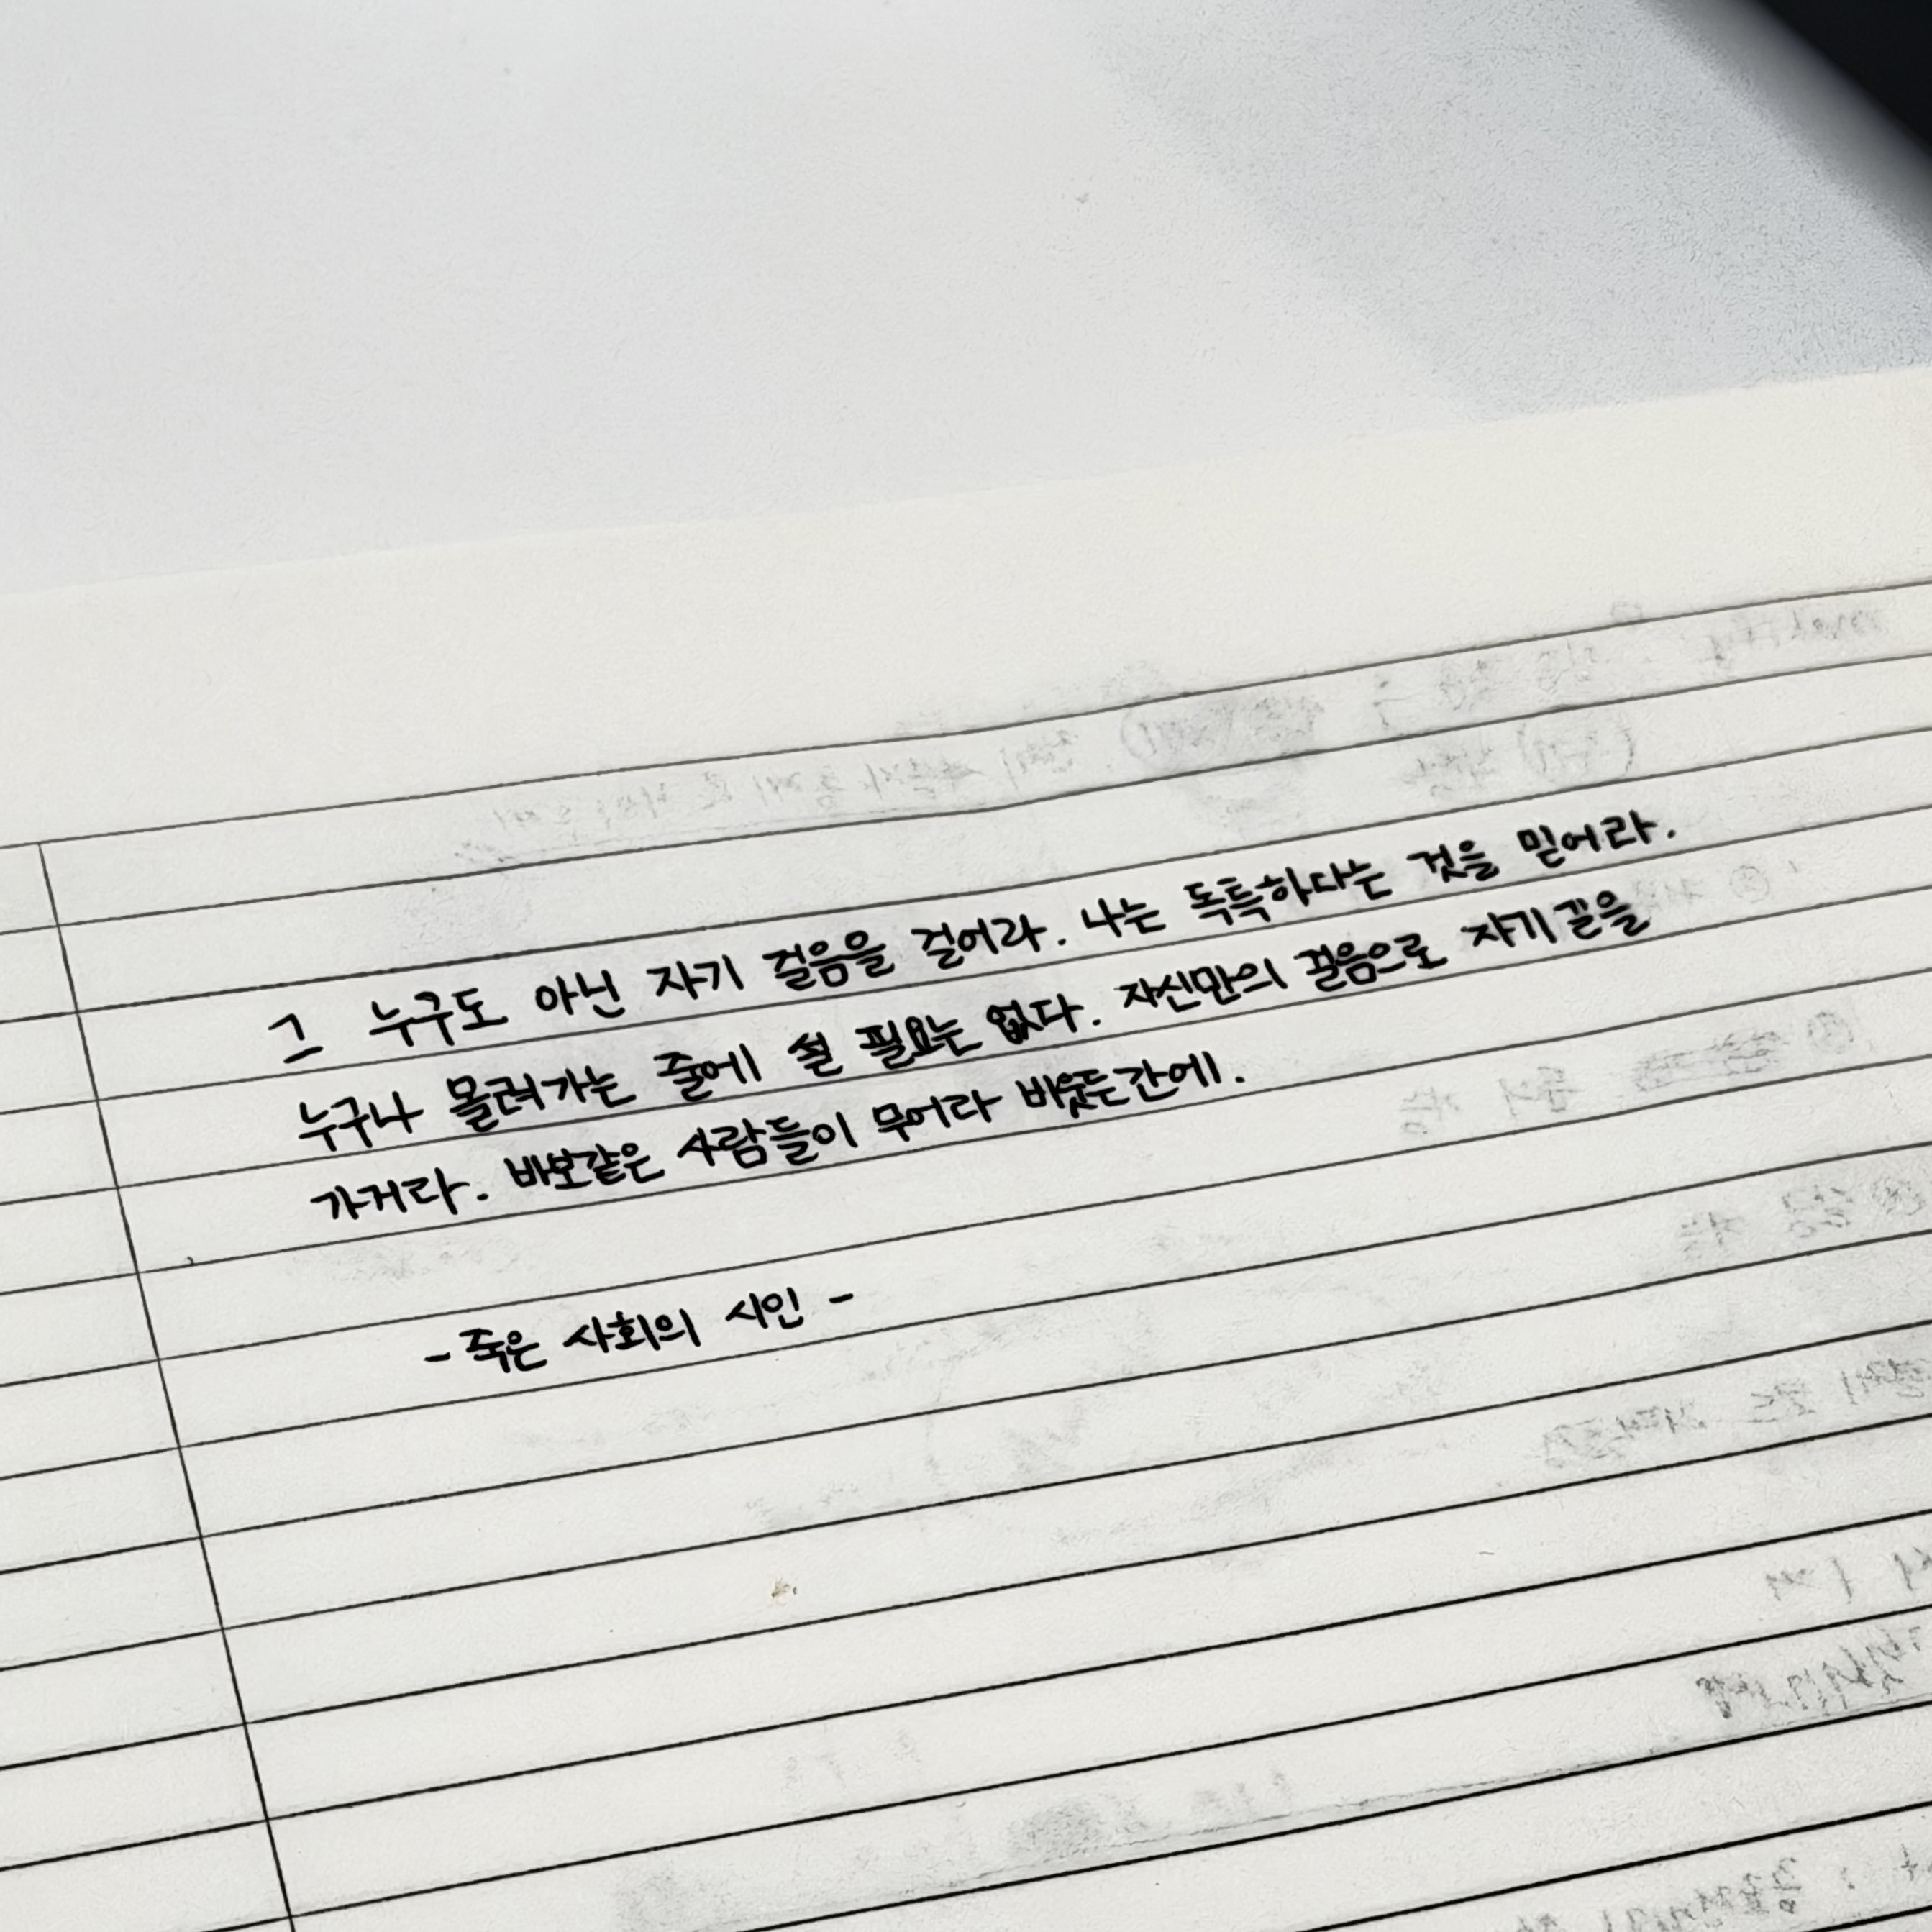 그 누구도 아닌 자기 걸음을 걸어라. 나는 독특하다는 것을 믿어라.
누구나 몰려가는 줄에 설 필요는 없다. 자신만의 걸음으로 자기길을
가거라. 바보같은 사람들이 무어라 비웃든간에.
- 죽은 사회의 시인 -